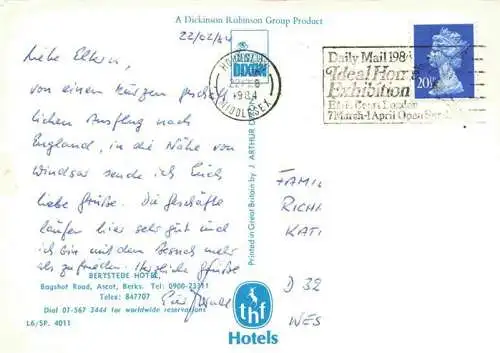 A Dickinson Robinson Group Product
22/02/84
Liebe Eltern,
von einem kurzen geschäft
lichen Ausflug nach
England, in die Nähe von
Windsor sende ich Euch
liebe Grüße. Die Geschäfte
laufen hier sehr gut und
ich bin mit dem Besuch mehr
als zufrieden. Herzliche Grüße
BERYSTEDE HOTEL,
Bagshot Road, Ascot, Berks. Tel: 0900-73311
Telex: 847707
Dial 07-567 3444 for worldwide reservations
L6/SP. 4011
DIXON
Printed in Great Britain by J. ARTHUR
HOUNSLOW
1984
MIDDLESEX
Daily Mail 1984
Ideal Home
Exhibition
Earls Court London
7 March-1 April Open Sun
20½P
FAMIL
RICHA
KATI
D 32
WES
thf
Hotels